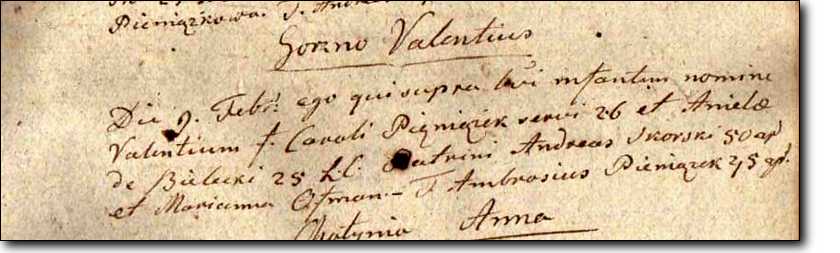 Pieniążkowa. T. Andr
Gorzno Valentius
Die 9. Febr: ego qui supra bvi infantem nomine
Valentium f. Caroli Pieniązek servi 26 et Anielæ
de Bielecki 25 L.C. Patrini Andreas Skorski 50 ap
et Marianna Ofman - T Ambrosius Pieniązek 45 ap.
Chotynia Anna